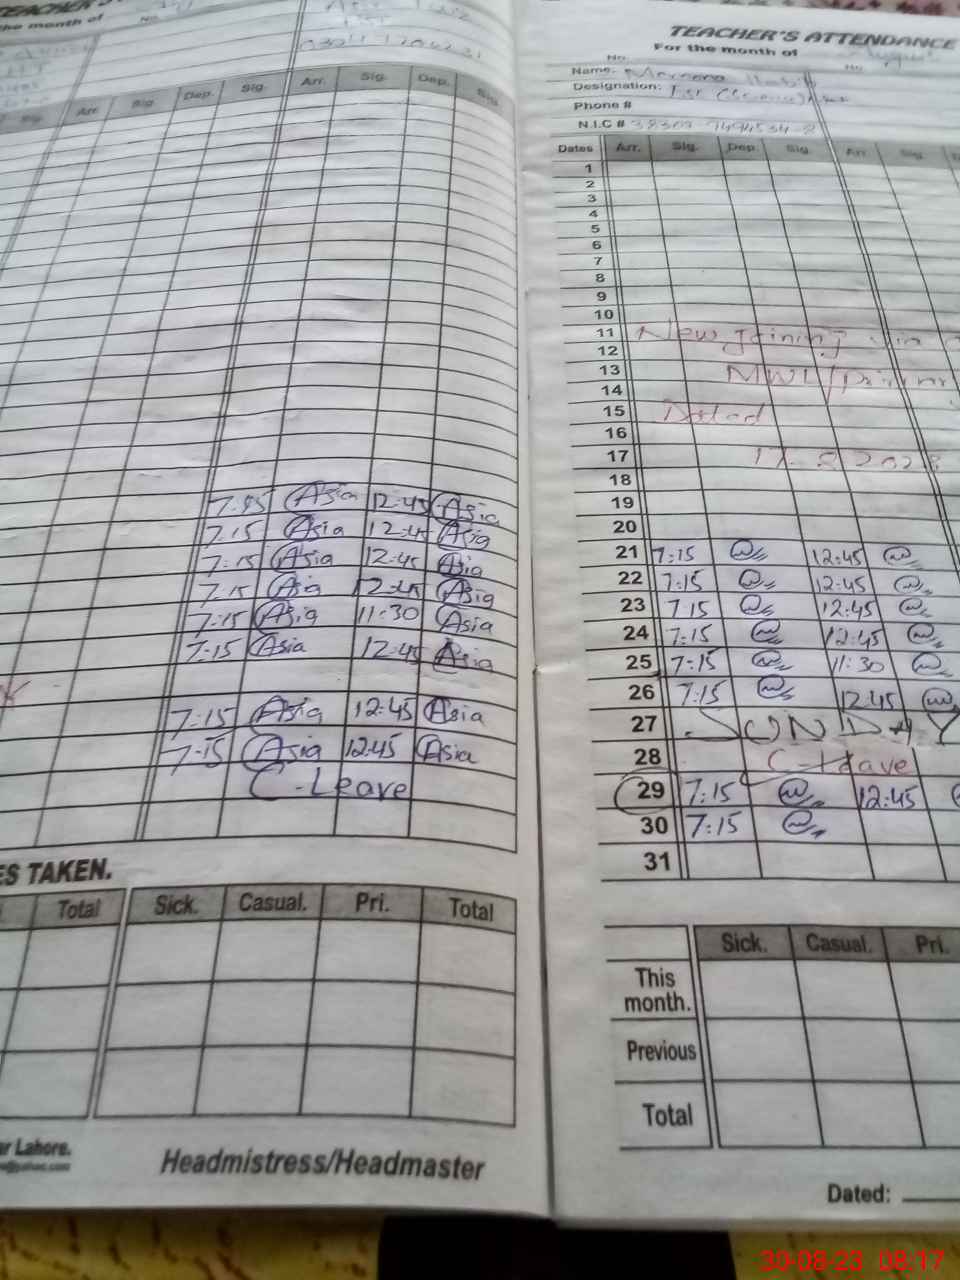 the month of
No.
Arr. Sig. Dep. Sig. Arr. Sig. Dep. Sig.
7:15 Asia 12:45 Asia
7:15 Asia 12:45 Asia
7:15 Asia 12:45 Asia
7:15 Asia 12:45 Asia
7:15 Asia 11:30 Asia
7:15 Asia 12:45 Asia
7:15 Asia 12:45 Asia
7:15 Asia 12:45 Asia
C-Leave
ES TAKEN.
Total Sick. Casual. Pri. Total
ar Lahore.
Headmistress/Headmaster
TEACHER'S ATTENDANCE
For the month of August
No. No.
Name:
Designation:
Phone #
N.I.C #
Dates Arr. Sig. Dep. Sig. Arr. Sig.
1
2
3
4
5
6
7
8
9
10
11 New joining
12
13
14
15 Dated
16
17
18
19
20
21 7:15 12:45
22 7:15 12:45
23 7:15 12:45
24 7:15 12:45
25 7:15 11:30
26 7:15 12:45
27 SUNDAY
28 C-Leave
29 7:15 12:45
30 7:15
31
Sick. Casual. Pri.
This month.
Previous
Total
Dated:
30-08-23 08:17